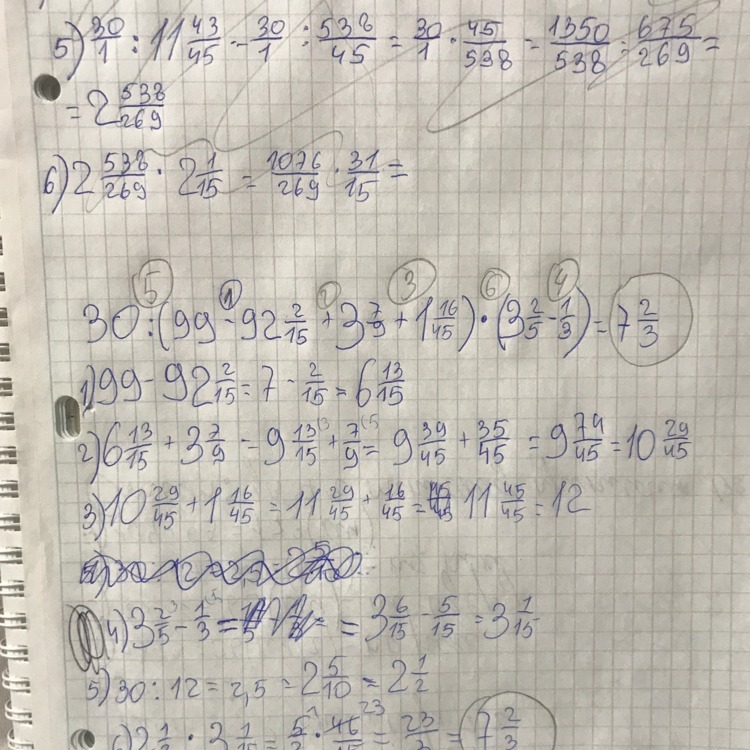 5) 30/1 : 11 43/45 - 30/1 : 538/45 = 30/1 · 45/538 = 1350/538 = 675/269 =
= 2 538/269
6) 2 538/269 · 2 1/15 = 1076/269 · 31/15 =
5 1 2 3 6 4
30 : (99 - 92 2/15 + 3 7/9 + 1 16/45) · (3 2/5 - 1/3) = 7 2/3
1) 99 - 92 2/15 = 7 - 2/15 = 6 13/15
2) 6 13/15 + 3 7/9 = 9 13/15 + 7/9 = 9 39/45 + 35/45 = 9 74/45 = 10 29/45
3) 10 29/45 + 1 16/45 = 11 29/45 + 16/45 = 11 45/45 = 12
4) 3 2/5 - 1/3 = = 3 6/15 - 5/15 = 3 1/15
5) 30 : 12 = 2,5 = 2 5/10 = 2 1/2
6) 2 1/2 · 3 1/15 = 5/2 · 46/15 = 23/3 = 7 2/3